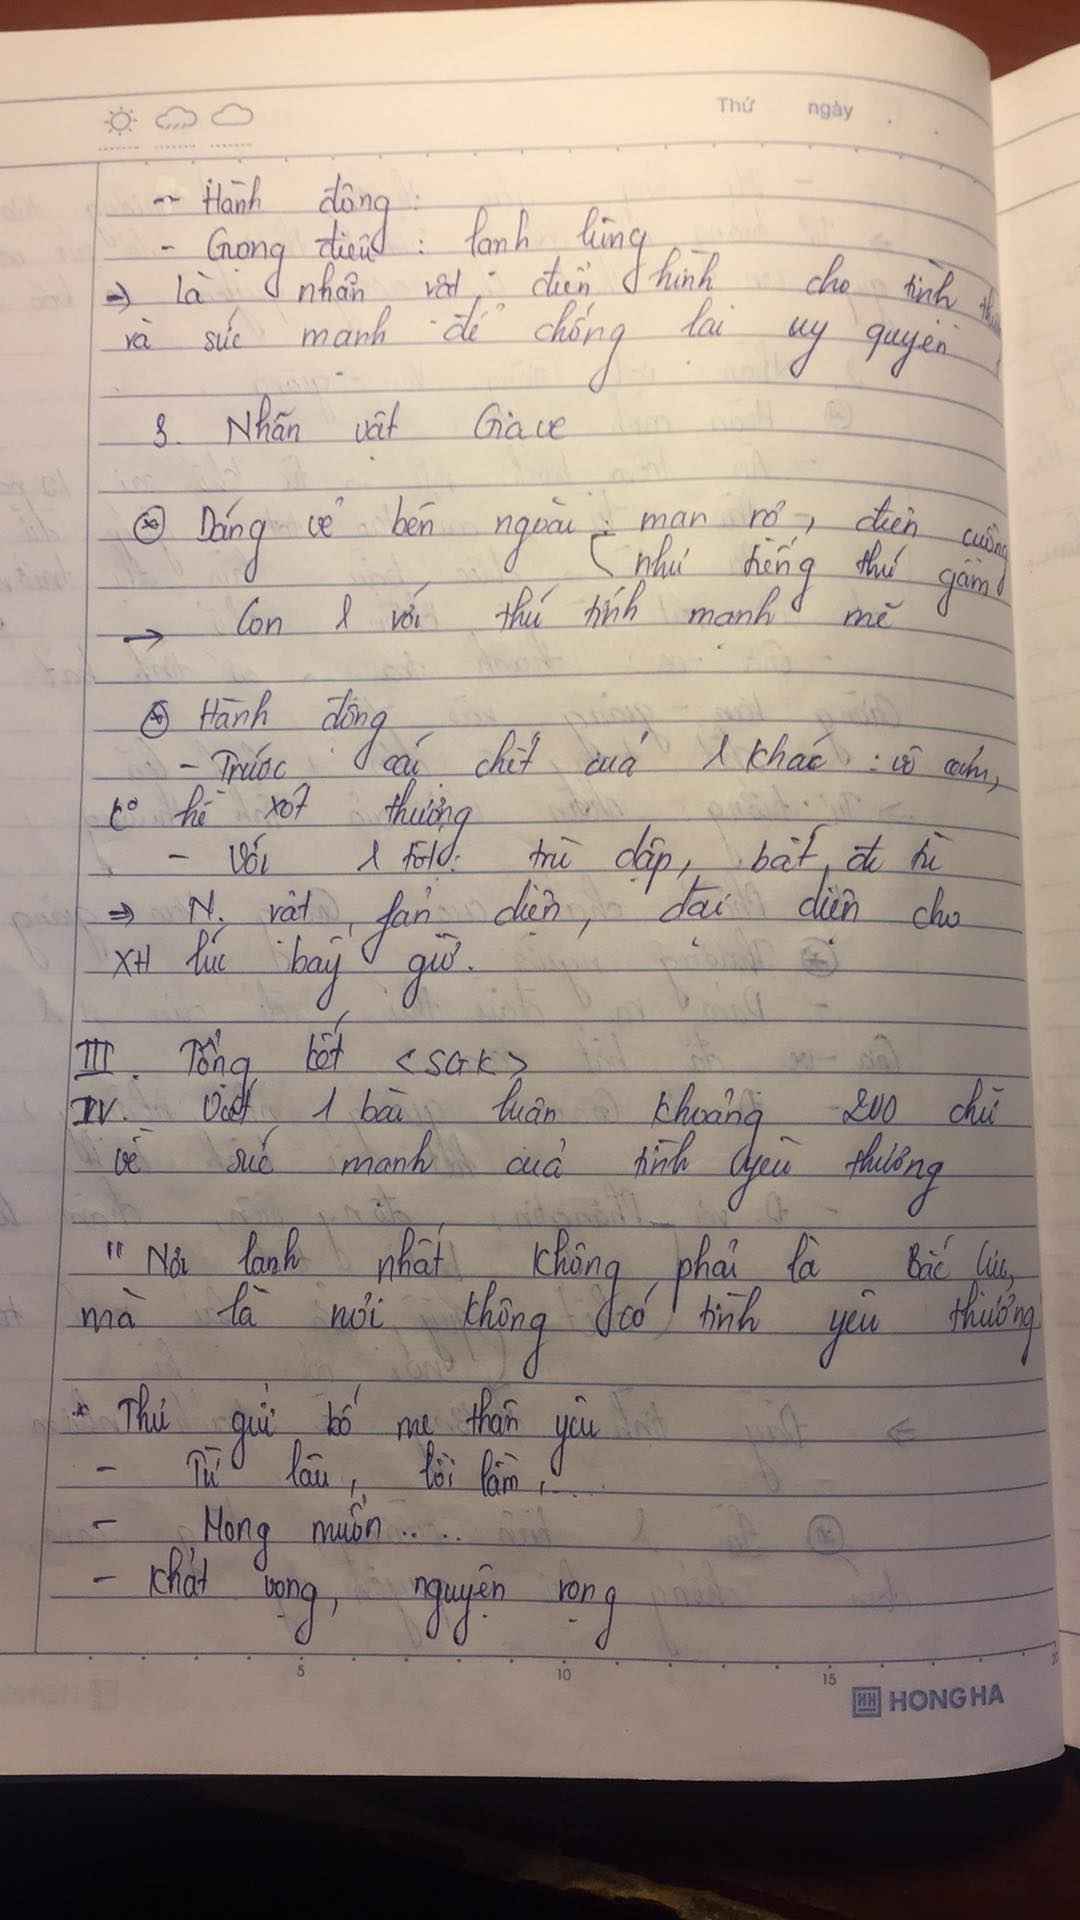 Thứ ngày
- Hành động :
- Giọng điệu : lạnh lùng
→ là nhân vật điển hình cho tình
và sức mạnh để chống lại uy quyền
3. Nhân vật Giave
* Dáng vẻ bên ngoài : man rợ, điên cuồng
như tiếng thú gầm
→ Con λ với thú tính mạnh mẽ
* Hành động
- Trước cái chết của λ khác : vô cảm,
k° hề xót thương
- Với λ : trù dập, bắt đi tù
⇒ N. vật fản diện, đại diện cho
XH lúc bấy giờ.
III. Tổng kết <SGK>
IV. Viết 1 bài luận khoảng 200 chữ
về sức mạnh của tình yêu thương
" Nơi lạnh nhất không phải là Bắc Cực,
mà là nơi không có tình yêu thương
* Thư gửi bố mẹ thân yêu
- Từ lâu, lỗi lầm,....
- Mong muốn....
- Khát vọng, nguyện vọng
5 10 15 20
HH HONG HA